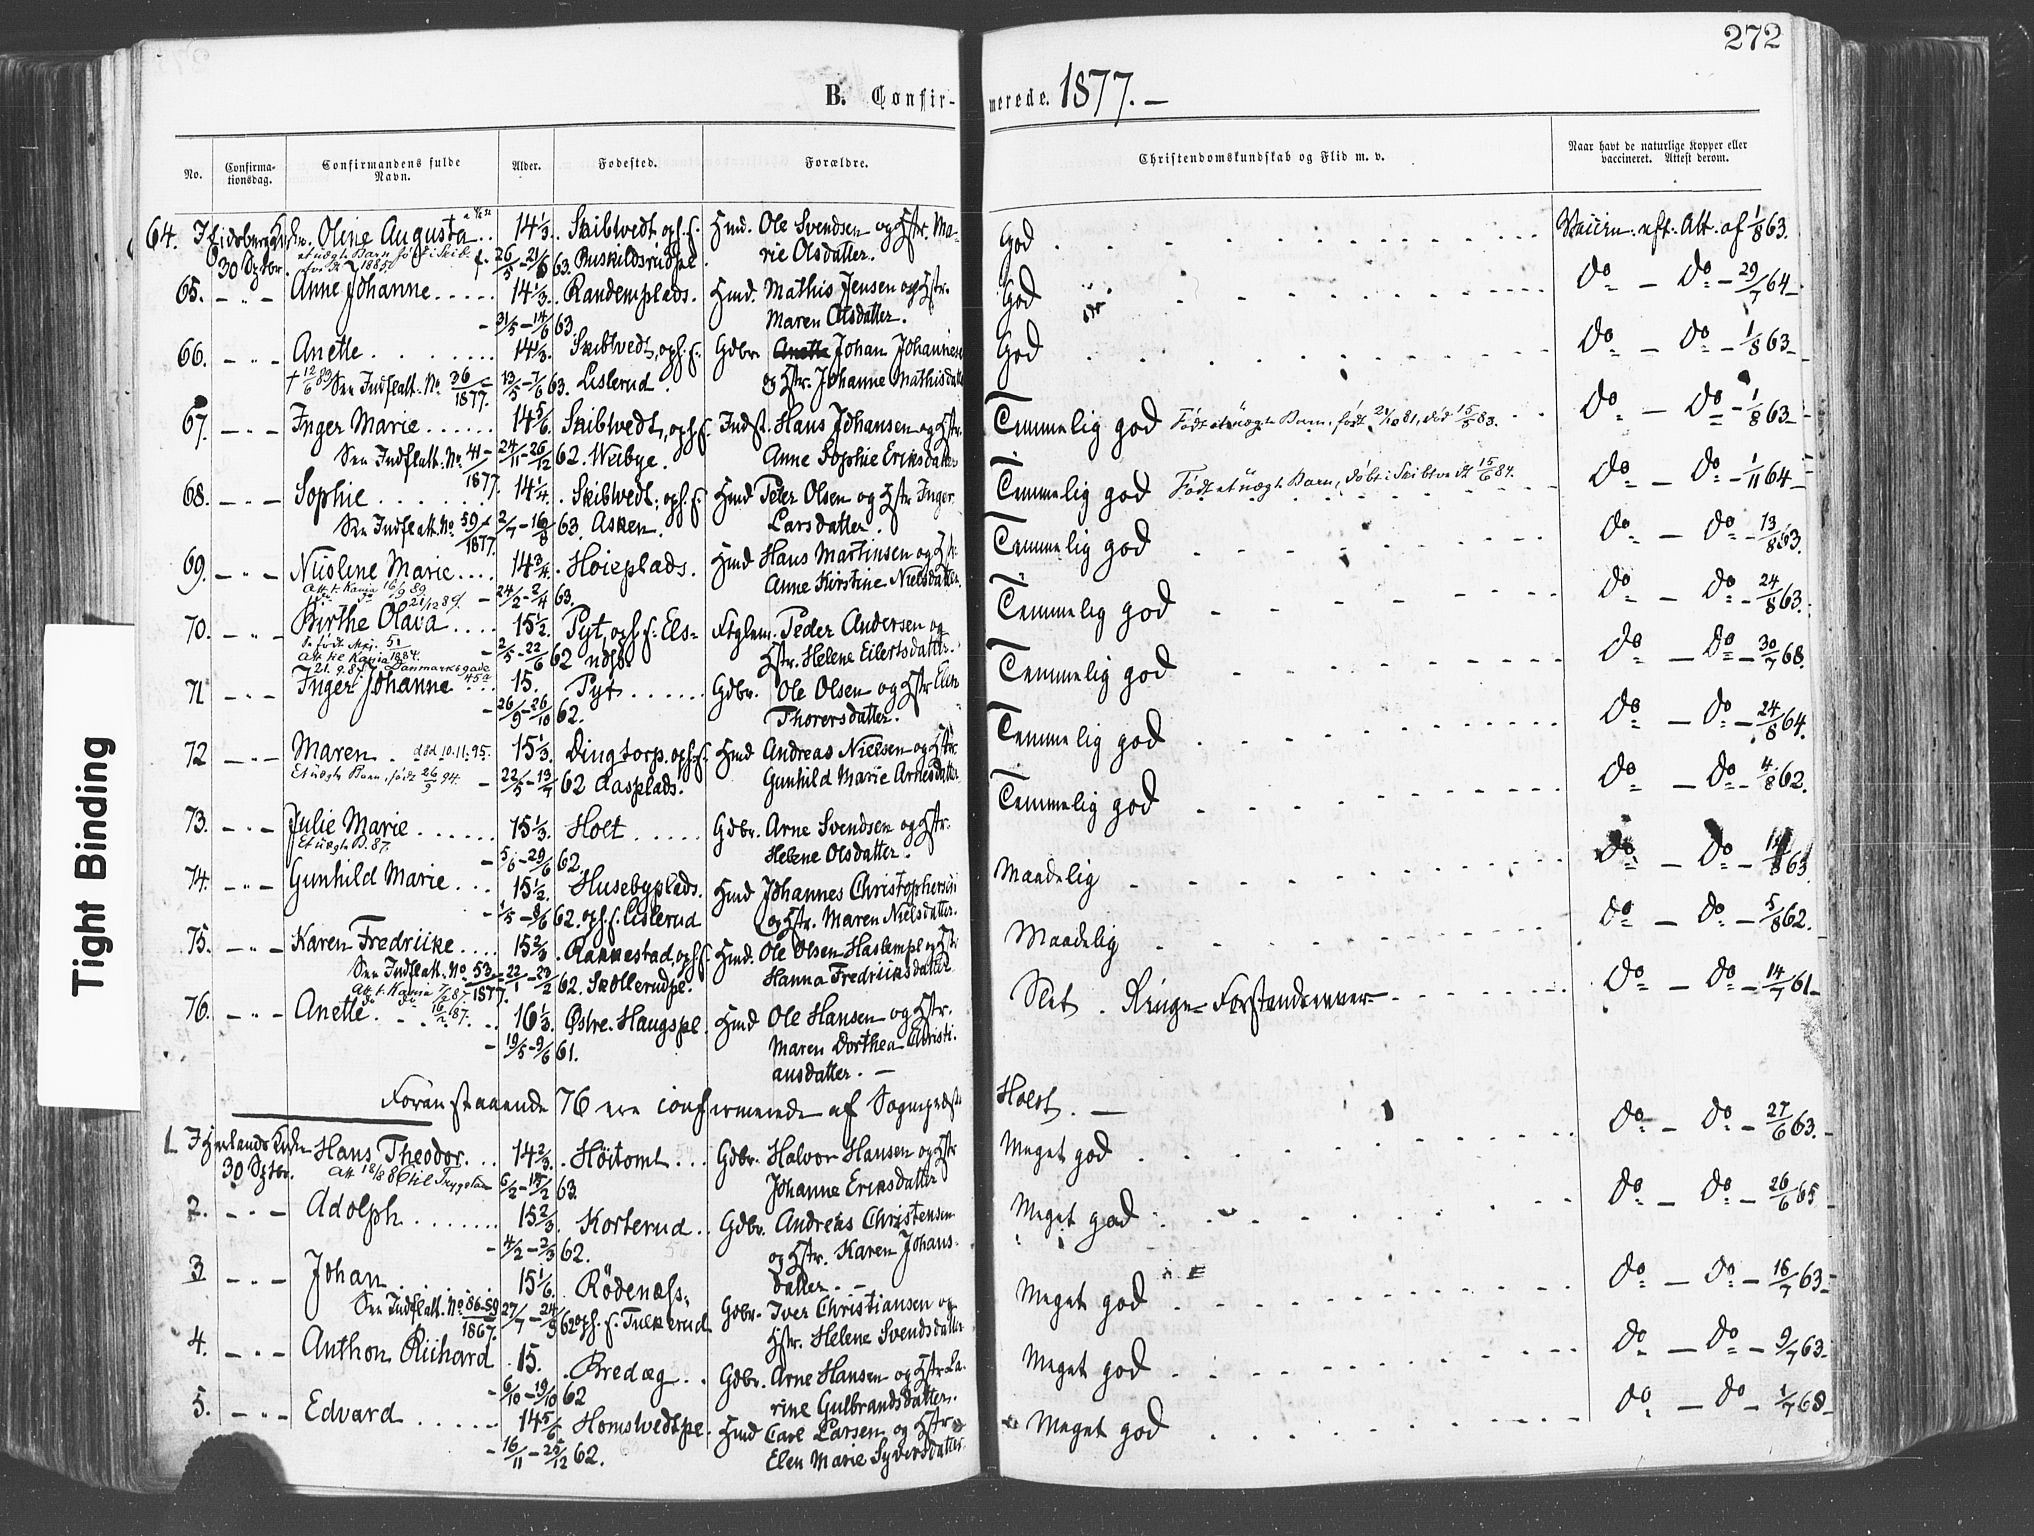 272
B. Confir-
merede. 1877. —
No.
Confirma-
tionsdag.
Confirmandens fulde
Navn.
Alder.
Fødested.
Forældre.
Christendomskundskab og Flid m. v.
Naar havt de naturlige Kopper eller
vaccineret. Attest derom.
64. I Eidsberg Oline Augusta 14 1/3. Skibtvedt, oph. f. Hmd. Ole Svendsen og Hstr. Ma-
30 Sptbr. 26/5 - 21/6 63. Buskildsrudpl. rie Olsdatter.
God Vaccin. eft. Att. af 1/8 63.
65. - " - Anne Johanne 14 1/3. Randemplads. Hmd. Mathis Jensen og Hstr.
31/5 - 14/6 63. Maren Olsdatter.
God Do - Do - 29/7 64
66. - " - Anette 14 1/3. Skibtvedt, oph. f. Gdbr. Johan Johannesen
† 12/6 89 Sen Indflatt. No 36/1877. 13/5 - 7/6 63. Lislerud. og Hstr. Johanne Mathisdatter
God Do - Do - 1/8 63
67. - " - Inger Marie 14 5/6. Skibtvedt, oph. f. Indst. Hans Johansen og Hstr.
Sen Indflatt. No 41/1877. 24/11 - 26/12 62. Weibye. Anne Sophie Eriksdatter
Temmelig god Født et uægte Barn, født 21/10 81, død 15/5 83. Do - Do - 1/8 63
68. - " - Sophie 14 1/4. Skibtvedt, oph. f. Hmd Peter Olsen og Hstr Inger
Sen Indflatt. No 59/1877. 2/7 - 16/8 63. Asken. Larsdatter.
Temmelig god Født et uægte Barn, døbt i Skibtvedt 15/6 84. Do - Do - 1/11 64
69. - " - Nicoline Marie 14 3/4. Høieplads. Hmd Hans Martinsen og Hstr.
24/2 - 2/4 63. Anne Kirstine Nielsdatter.
Temmelig god Do - Do - 13/8 63.
70. - " - Birthe Olava 15 1/2. Pyt, oph. f. Els- Peder Andersen og
2/5 - 22/6 62 Hstr. Helene Eilertsdatter.
Temmelig god Do - Do - 24/8 63.
71 - " - Inger Johanne 15. Pyt Gdbr. Ole Olsen og Hstr Elen
26/9 - 26/10 62. Thorersdatter.
Temmelig god Do - Do - 30/7 68.
72 - " - Maren død 10.11.95. 15 1/3. Dingtorp, oph. f. Hmd Andreas Nielsen og Hstr.
Et uægte Barn, født 26/9 94. 22/5 - 13/7 62 Aasplads. Gunhild Marie Arnesdatter
Temmelig god Do - Do - 24/8 64.
73. - " - Julie Marie 15 1/3. Holt Gdbr. Arne Svendsen og Hstr.
Et uægte B. 87. 5/6 - 29/6 62. Helene Olsdatter.
Temmelig god Do - Do - 4/8 62.
74. - " - Gunhild Marie 15 1/2. Husebyplads. Hmd Johannes Christophersen
1/5 - 8/6 62. oph. f. Lislerud og Hstr. Maren Nielsdatter.
Maadelig Do - Do - 63.
75. - " - Karen Fredrikke 15 2/3. Rakkestad, oph. f. Hmd. Ole Olsen Haslempl og Hstr.
Sen Indflatt. No 53/1877. 22/1 - 23/2 62. Skøllerudpl. Hanna Fredriksdatter
Maadelig Do - Do - 5/8 62.
76. - " - Anette 16 1/3. Østre Haugspl. Hmd Ole Hansen og Hstr.
19/5 - 9/6 61. Maren Dorthea Christi-
ansdatter. —
Slet. Ringe Forstandsevner Do - Do - 14/7 61
Foranstaaende 76 ere confirmerede af Sognepræst
Holst. —
1. I Hærlands Kirke Hans Theodor 14 2/3. Høitomt Gdbr. Halvor Hansen og Hstr
30 Sptbr. Att 18/8 86 til Trygstad 6/2 - 63. Johanne Eriksdatter
Meget god Do - Do - 27/6 63.
2. - " - Adolph 15 2/3. Korterud Gdbr. Andreas Christensen
4/2 - 2/3 62. og Hstr. Karen Johans-
datter
Meget god Do - Do - 26/6 65
3 - " - Johan 15 1/6. Rödenæss, Gdbr. Iver Christiansen og
Sen Indflatt. No 86-59/1867. 27/7 - 24/8 62 oph. f. Tukkerud Hstr. Helene Svendsdatter
Meget god Do - Do - 16/7 63
4. - " - Anthon Richard 15. Bredæg Gdbr. Arne Hansen og Hstr La-
6/10 - 19/10 62 rine Gulbrandsdatter.
Meget god Do - Do - 9/7 63
5. - " - Edvard 14 5/6. Homstvedtpl. Hmd Carl Larsen og Hstr
16/11 - 25/12 62. Elen Marie Syversdatter
Meget god Do - Do - 1/7 68
Tight Binding